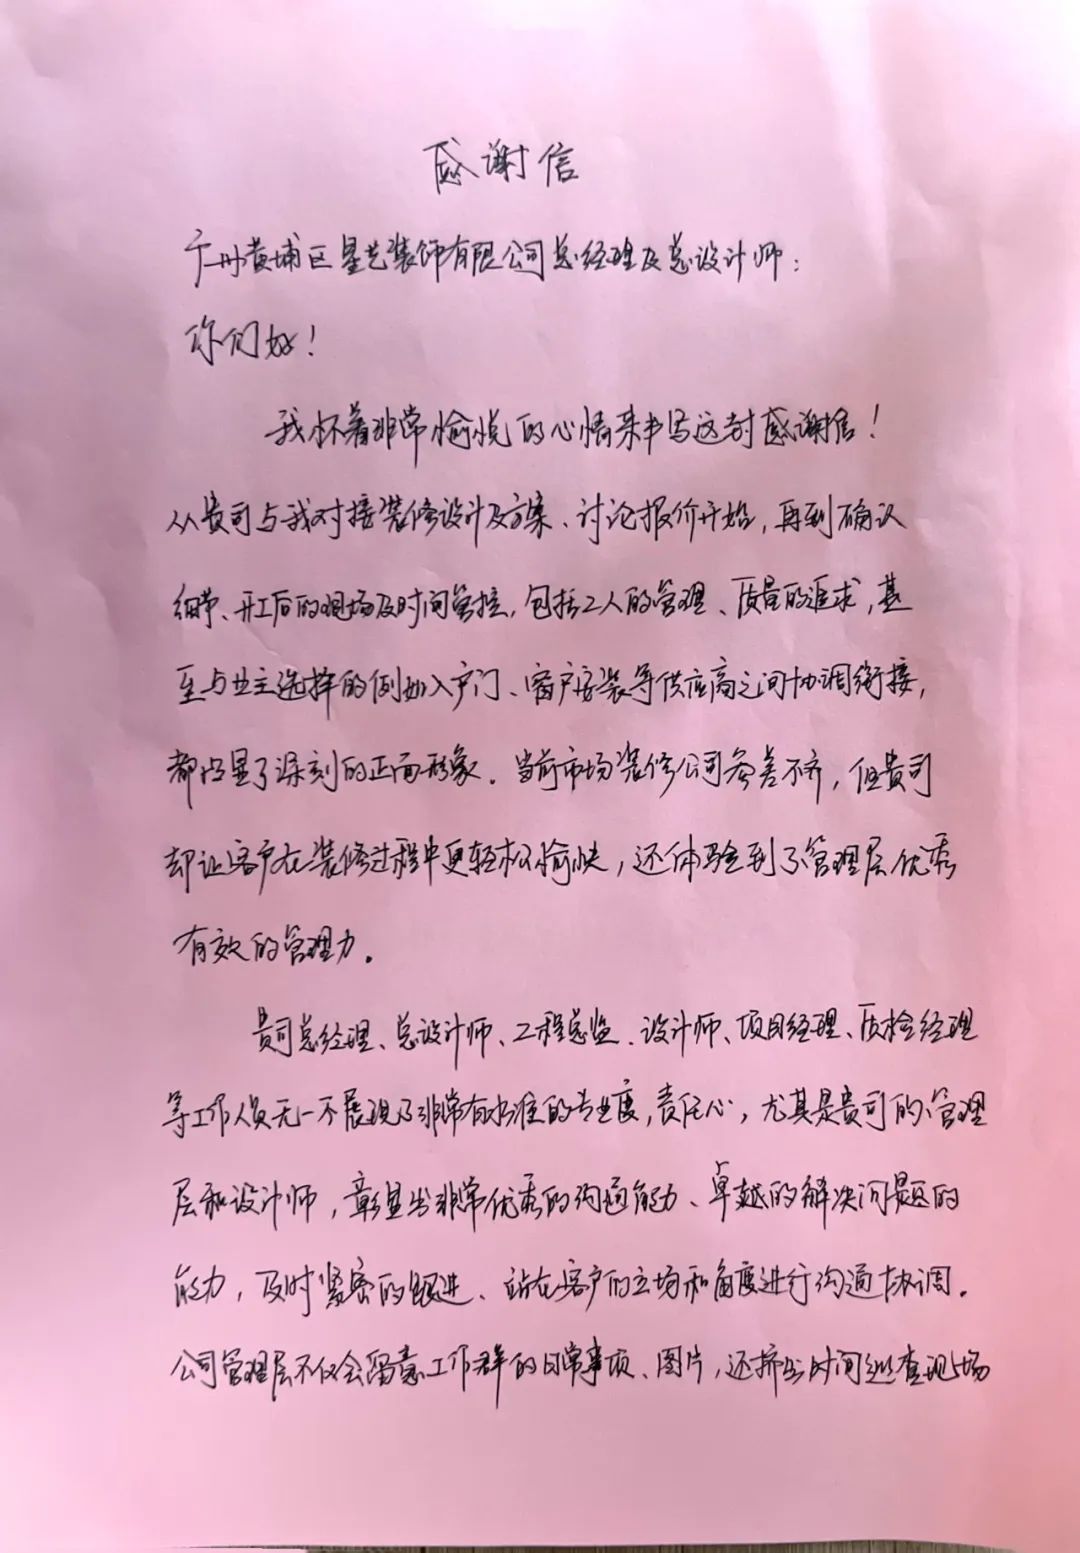 感谢信
广州黄埔区星艺装饰有限公司总经理及总设计师:
你们好!
我怀着非常愉悦的心情来书写这封感谢信!
从贵司与我对接装修设计及方案、讨论报价开始,再到确认
细节、开工后的现场及时间管控,包括工人的管理、质量的追求,甚
至与业主选择的例如入户门、窗户安装等供应商之间协调衔接,
都凸显了深刻的正面形象。当前市场装修公司参差不齐,但贵司
却让客户在装修过程中更轻松愉快,还体验到了管理层优秀
有效的管理力。
贵司总经理、总设计师、工程总监、设计师、项目经理、质检经理
等工作人员无一不展现了非常有水准的专业度,责任心,尤其是贵司的管理
层和设计师,彰显出非常优秀的沟通能力、卓越的解决问题的
能力,及时紧密的跟进、站在客户的立场和角度进行沟通协调。
公司管理层不仅会留意工作群的日常事项、图片,还挤出时间巡查现场